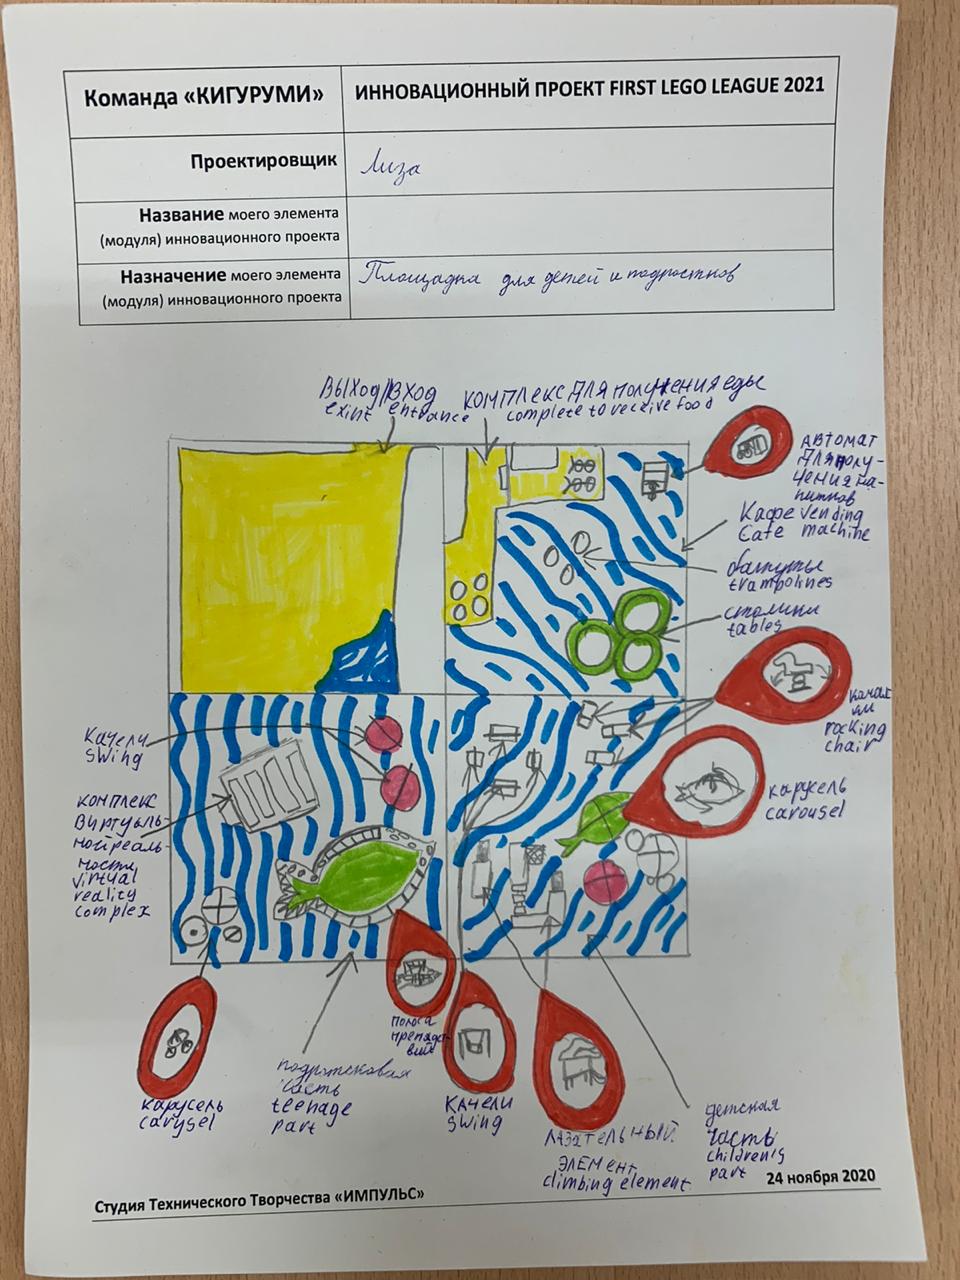 Команда «КИГУРУМИ»
ИННОВАЦИОННЫЙ ПРОЕКТ FIRST LEGO LEAGUE 2021
Проектировщик
Лиза
Название моего элемента
(модуля) инновационного проекта
Назначение моего элемента
(модуля) инновационного проекта
Площадка для детей и подростков
ВЫХОД/ВХОД
exint entrance
КОМПЛЕКС ДЛЯ ПОЛУЧЕНИЯ ЕДЫ
complete to receive food
АВТОМАТ
ДЛЯ ПОЛУ-
ЧЕНИЯ НА-
ПИТКОВ
vending
machine
Кафе
Cafe
батуты
trampolines
столики
tables
качал
ки
rocking
chair
карусель
carousel
Качели
swing
комплекс
виртуаль-
ной реаль-
ности
virtual
reality
complex
полоса
препядст-
вий
подростковая
часть
teenage
part
карусель
carysel
КАЧЕЛИ
swing
ЛАЗАТЕЛЬНЫЙ
ЭЛЕМЕНТ
climbing element
детская
часть
children's
part
24 ноября 2020
Студия Технического Творчества «ИМПУЛЬС»